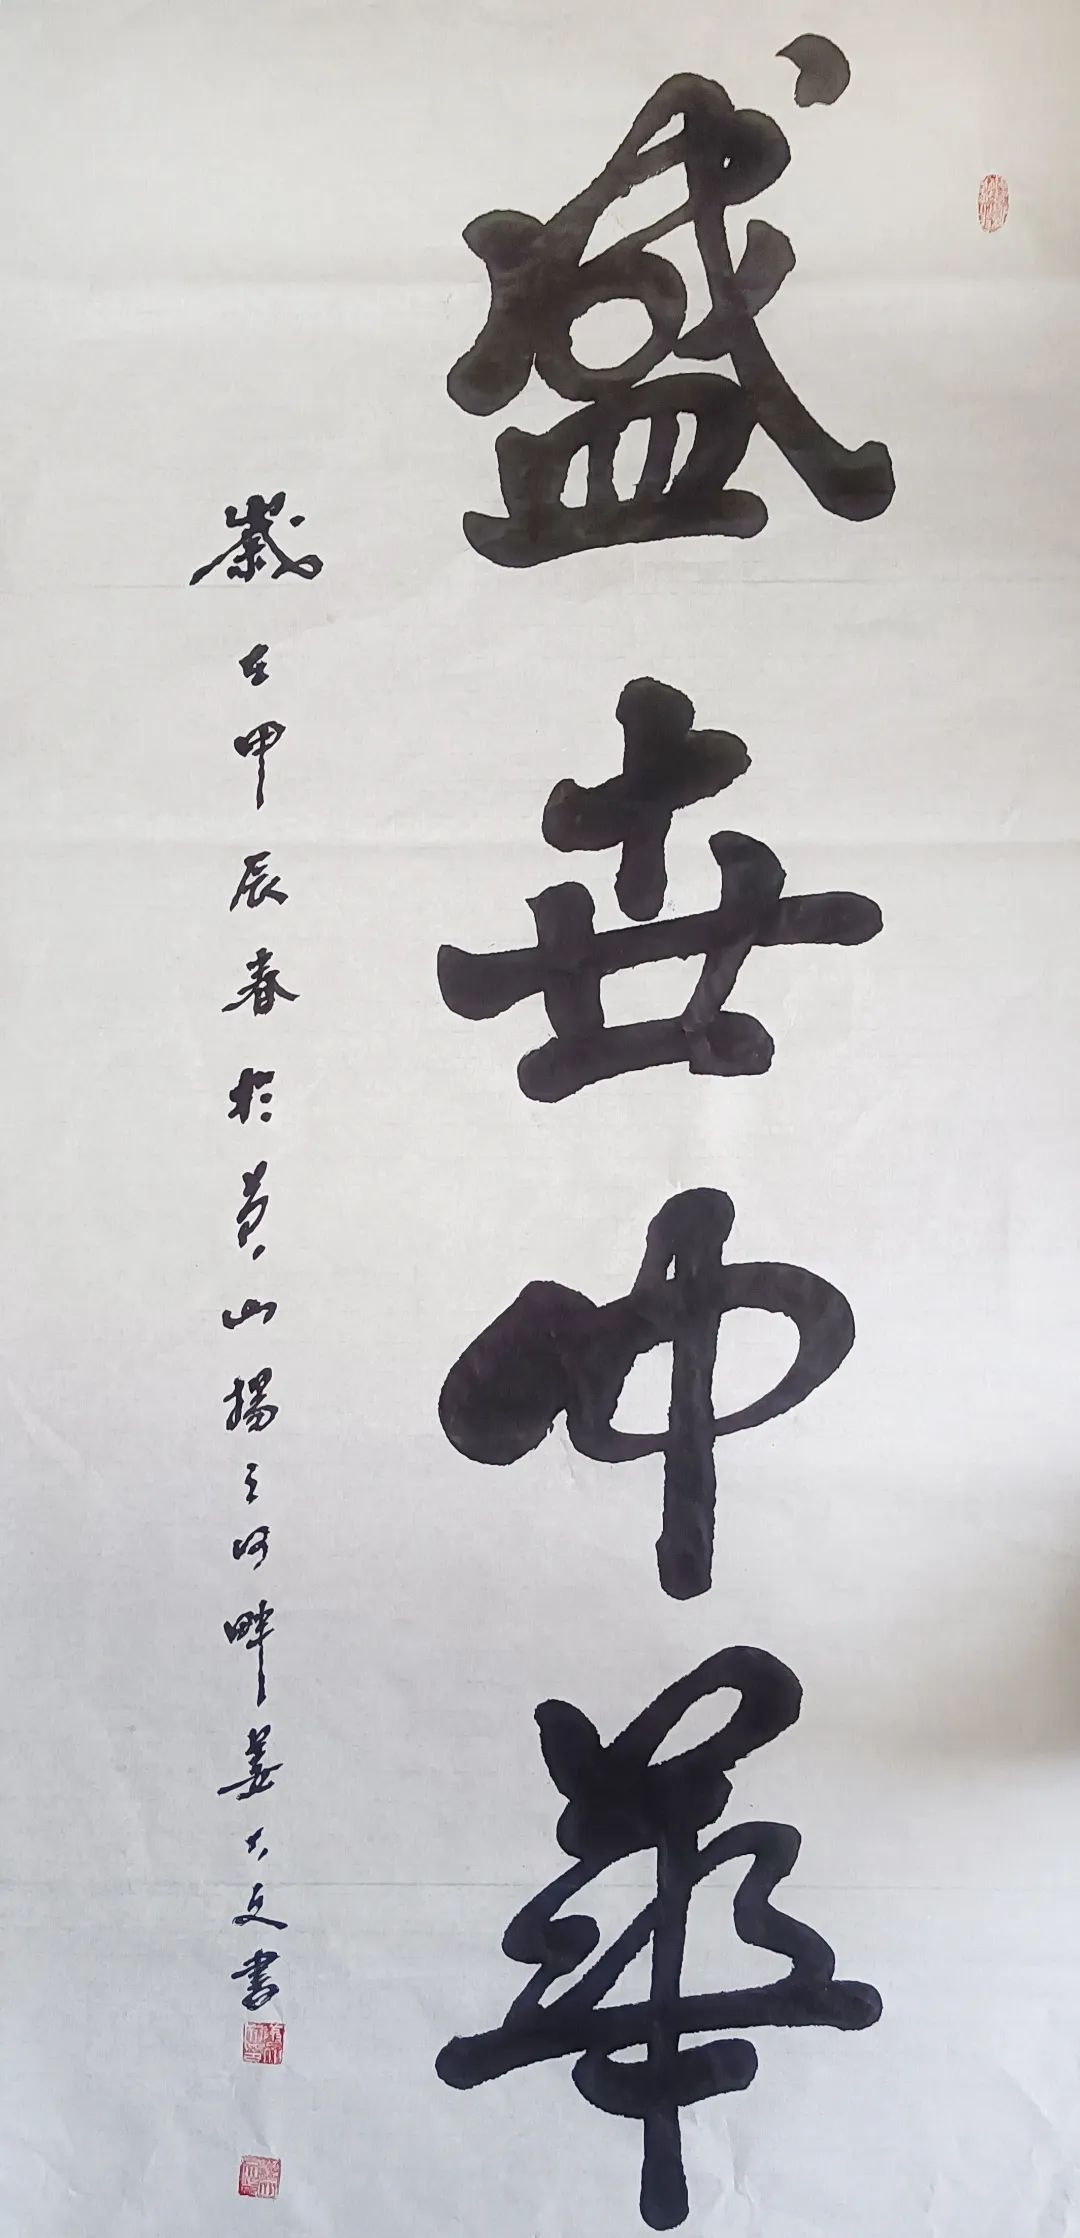 盛世中華
歲在甲辰春於黄山揚之河畔姜大文書